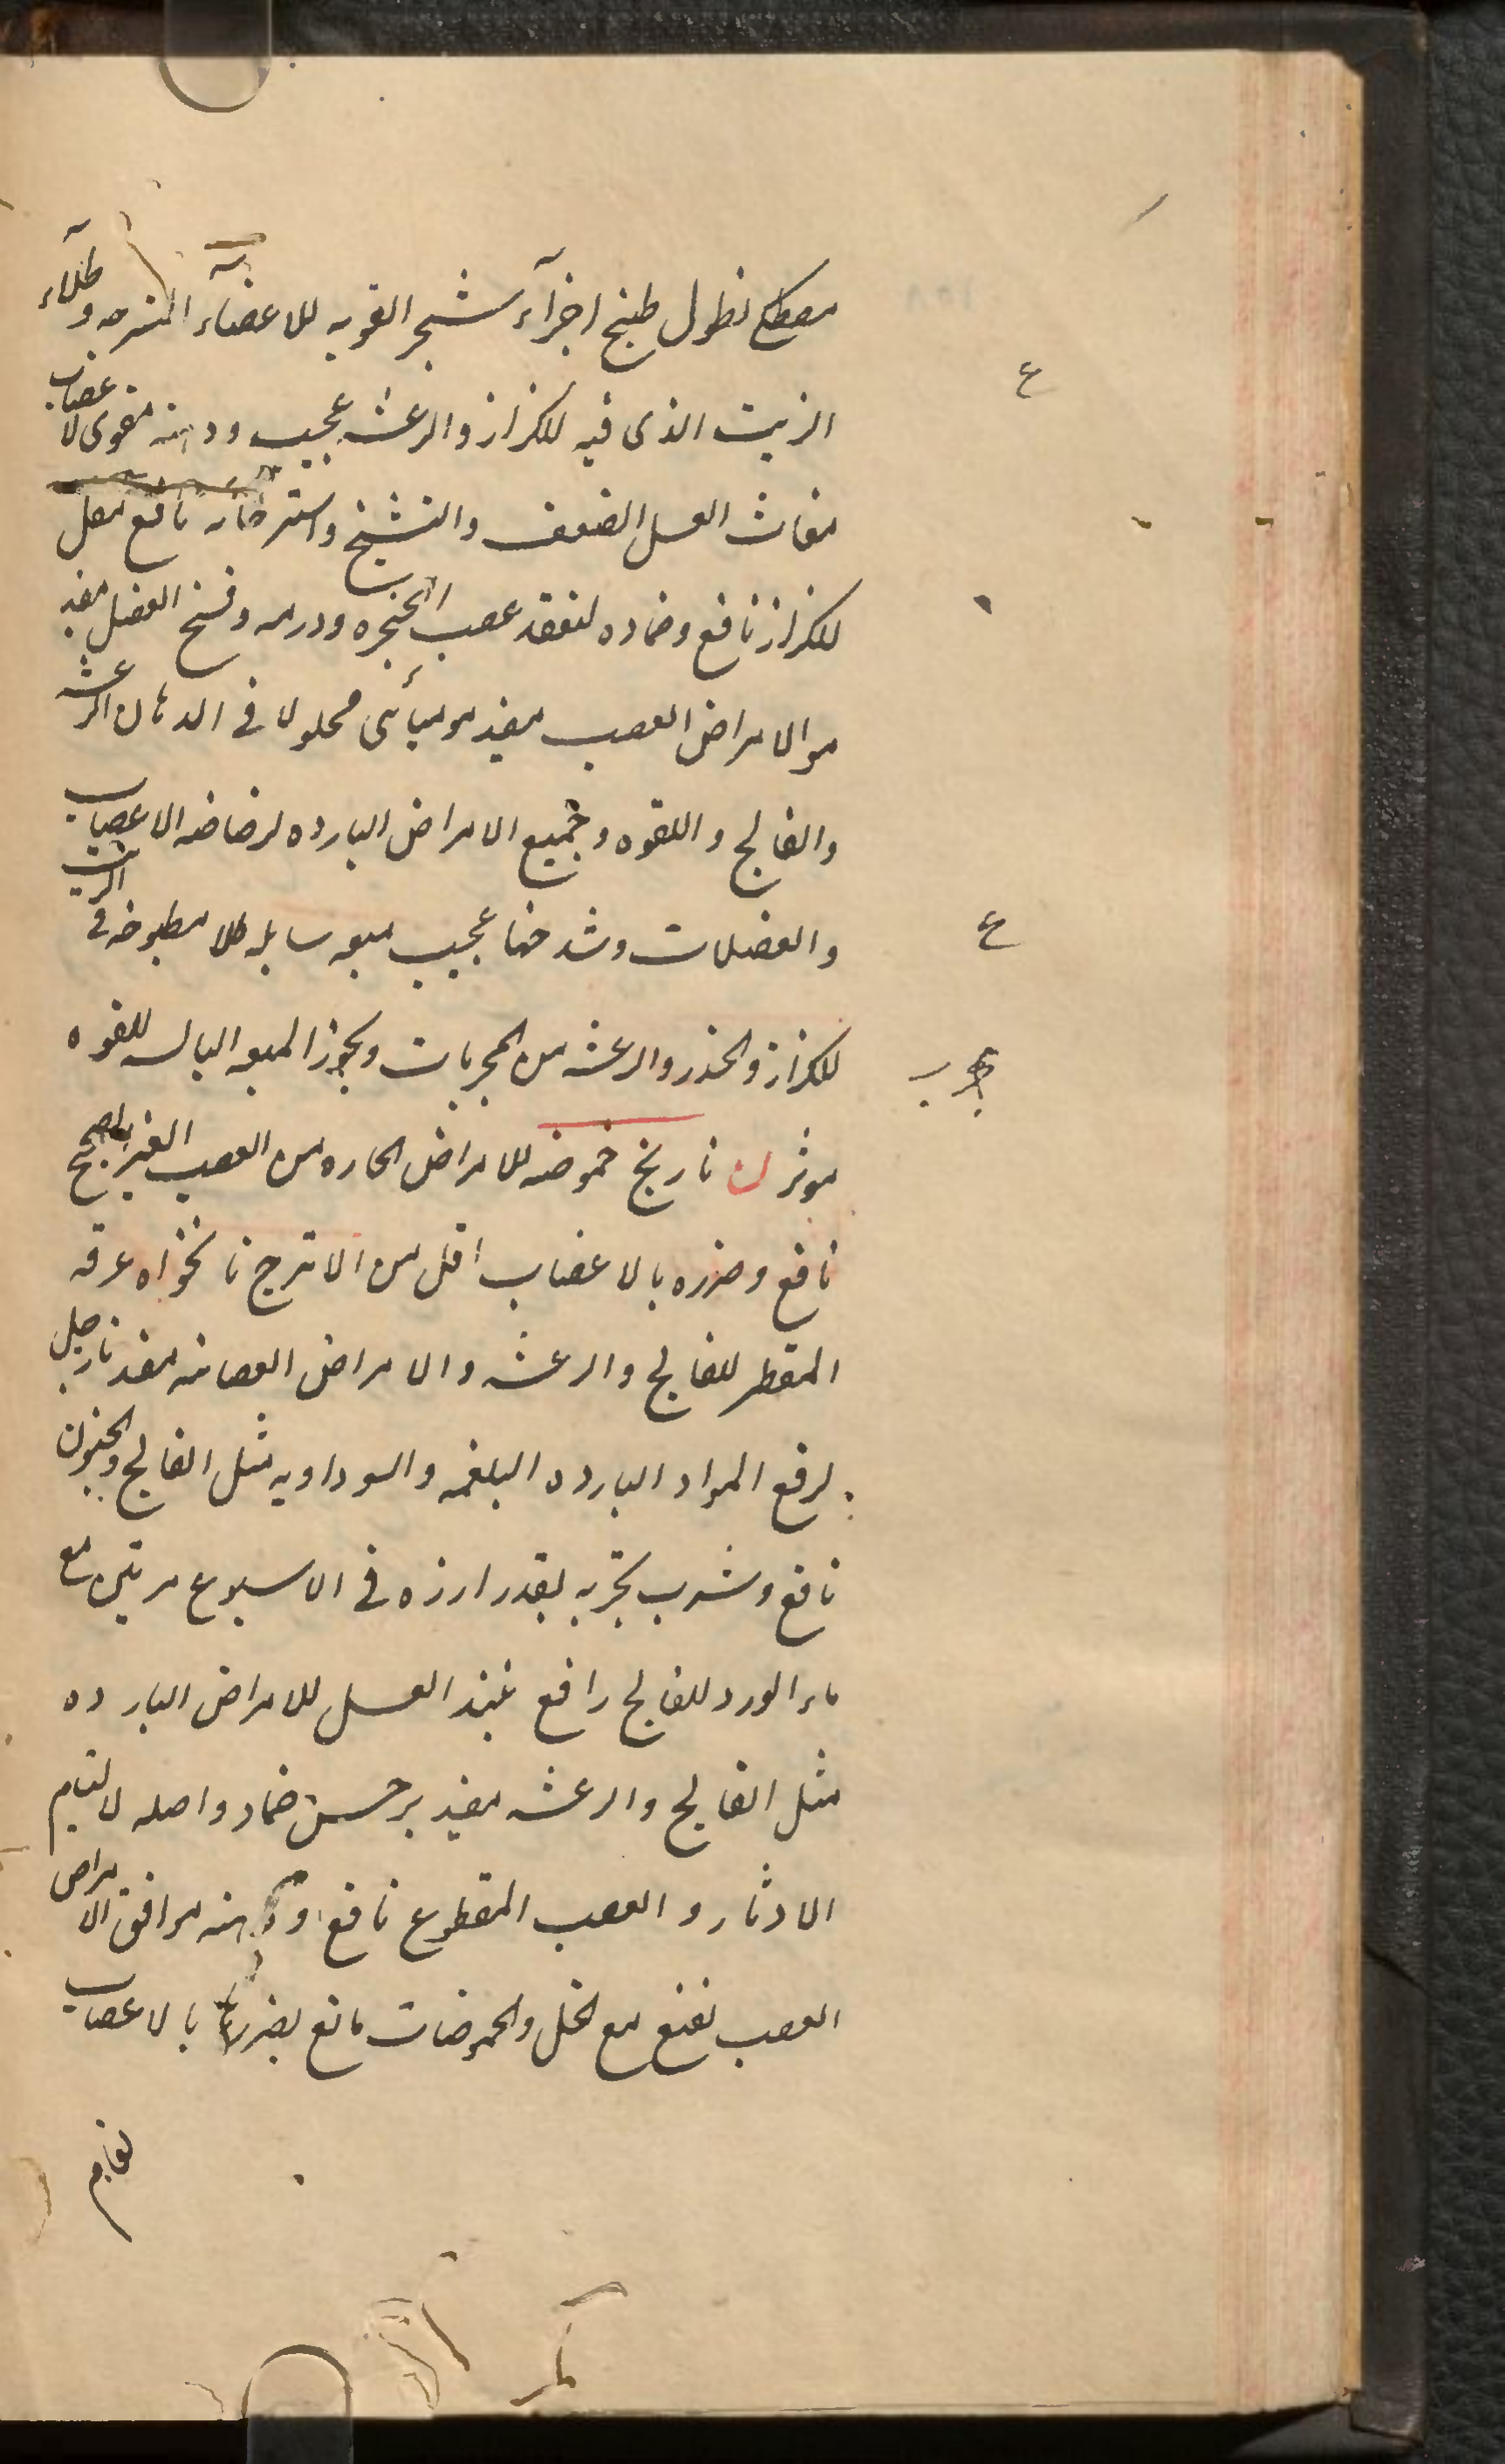 مصطكى نطول طبخ اجزآء شجر القويه للاعضآء المسترخيه وطلآء
الزيت الذى فيه للكزاز والرعشه عجيب ودهنه مقوى لاعصاب
مغاث العسل الضعف والتشنج واسترخائه نافع مقل
للكزاز نافع وضماده لتعقد عصب الحنجره وورمه وفسخ العضل مفيد
مو الامراض العصب مفيد موميائى محلولا فى الدهان الرعشه
والفالج واللقوه وجميع الامراض البارده لرضاضه الاعصاب
والعضلات وشدخها عجيب ميعه سايله طلا مطبوخه فى الزيت
للكزاز والخدر والرعشه من المجربات وبخور الميعه اليابسه للقوه
موثر ن نارنج حموضه للامراض الحاره من العصب الغير
نافع وضرره بالاعصاب اقل من الاترج نانخواه عرقه
المقطر للفالج والرعشه والامراض العصانيه مفيد نارجيل
لرفع المواد البارده البلغميه والسوداويه مثل الفالج والجنون
نافع وشرب بقدر ارزه فى الاسبوع مرتين مع
ماء الورد للفالج رافع نبيذ العسل للامراض البارده
مثل الفالج والرعشه مفيد نرجس ضماد اصله لالتيام
الاوتار والعصب المقطوع نافع ودهنه موافق الامراض
العصب نعنع مع الخل والحموضات مانع لضررها بالاعصاب
ع
ع
مجرب